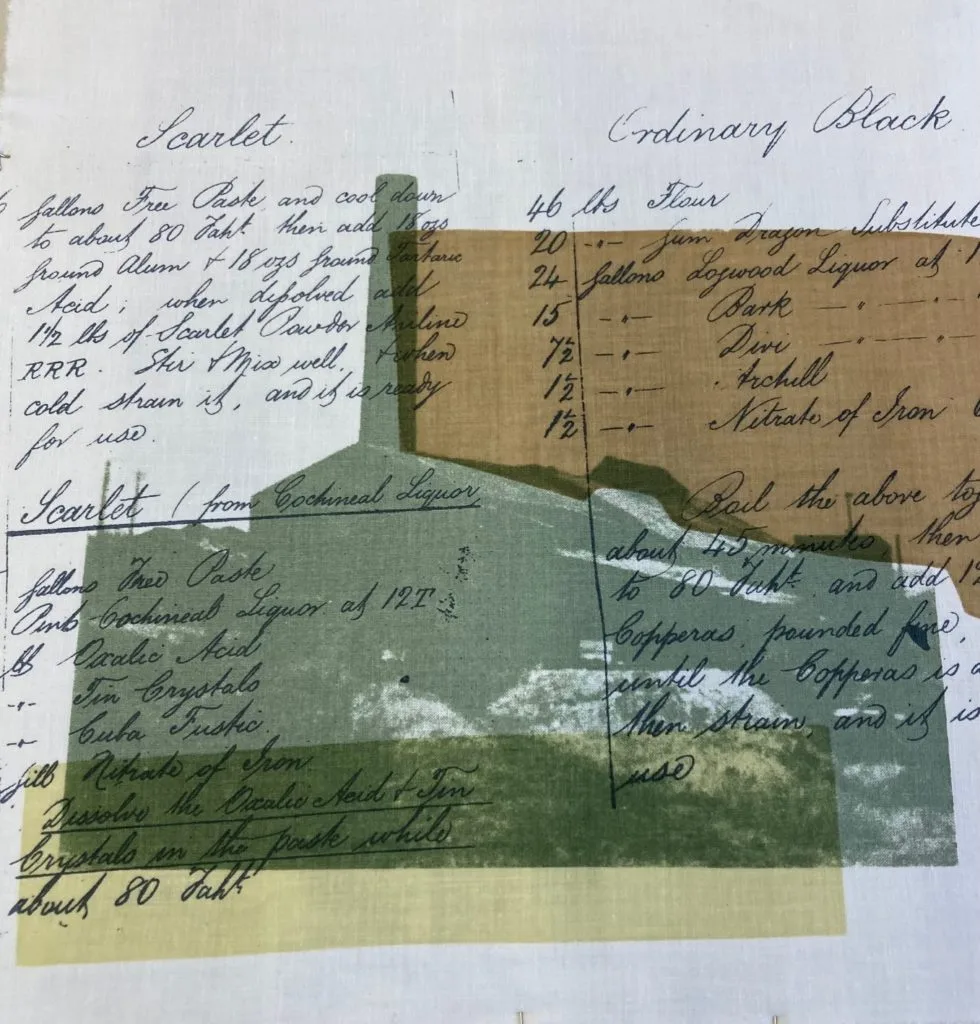 Scarlet.
Gallons Free Paste, and cool down
to about 80 Faht. then add 18 ozs
Ground Alum & 18 ozs Ground Tartaric
Acid; when dissolved add
1 1/2 lbs of Scarlet Powder Aniline
RRR. Stir & Mix well, & when
cold strain it, and it is ready
for use.
Scarlet (from Cochineal Liquor
Gallons Free Paste
Pints Cochineal Liquor at 12T
lb Oxalic Acid
-"- Tin Crystals
-"- Cuba Fustic
Gill Nitrate of Iron
Dissolve the Oxalic Acid & Tin
Crystals in the paste while
about 80 Faht
Ordinary Black
46 lbs Flour
20 -"- Gum Dragon Substitute
24 Gallons Logwood Liquor at 1
15 -"- Bark -"-
7 1/2 -"- Divi -"-
1 1/2 -"- Archill
1 1/2 -"- Nitrate of Iron
Boil the above tog
about 45 minutes then
to 80 Faht. and add 12
Copperas pounded fine,
until the Copperas is
then strain, and it is
use